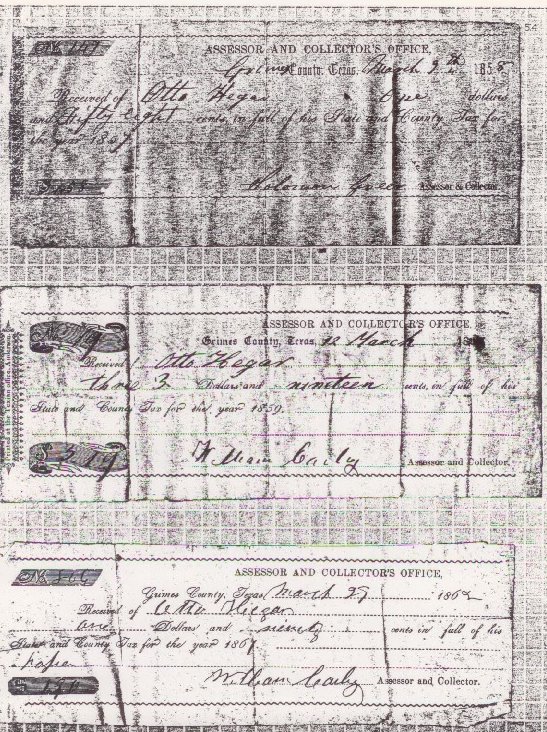 No. 147
ASSESSOR AND COLLECTOR'S OFFICE,
Grimes County, Texas, March 9th 1858
Received of Otto Hegar One dollars
and fifty eight cents, in full of his State and County Tax for
the year 1857
Solomon Greer Assessor & Collector.
ASSESSOR AND COLLECTOR'S OFFICE,
Grimes County, Texas, 12 March
Received Otto Hegar
three 3 Dollars and nineteen cents, in full of his
State and County Tax for the year 1859.
3 19
William Assessor and Collector.
ASSESSOR AND COLLECTOR'S OFFICE,
Grimes County, Texas, March 27 1862
Received of Otto Hiegar
one Dollars and ninety cents in full of his
State and County Tax for the year 1861
paper
William Assessor and Collector.